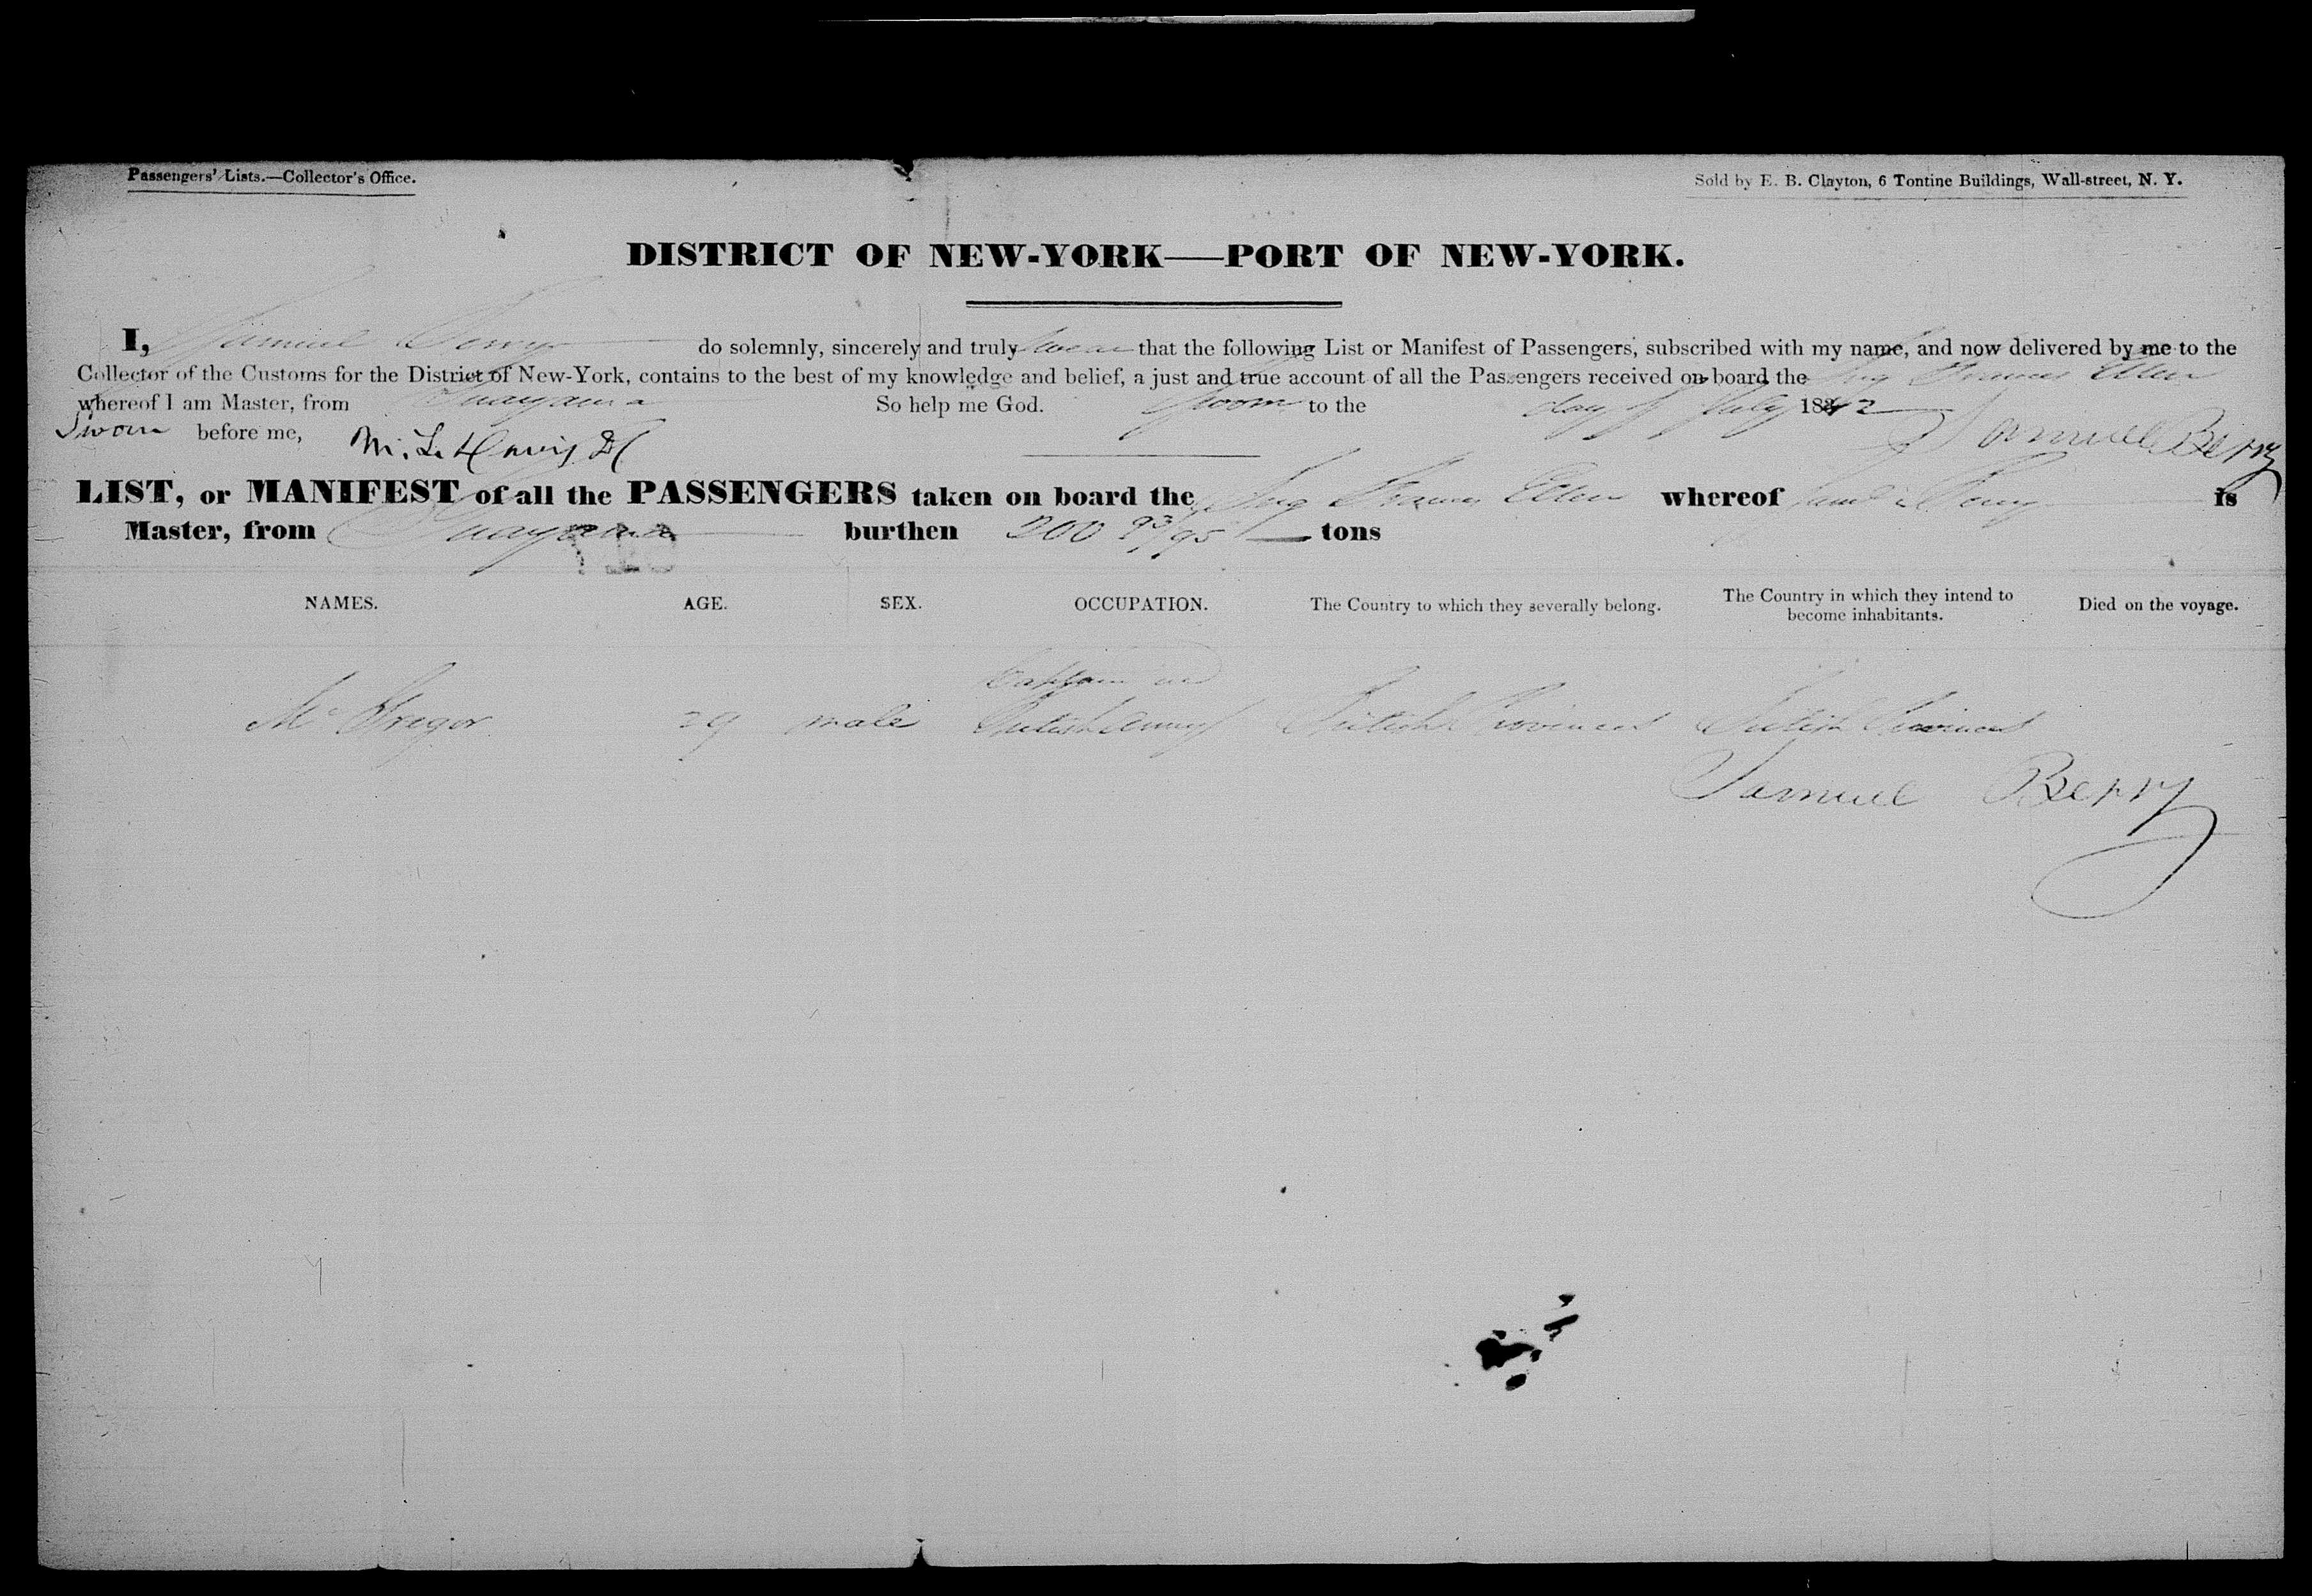 Passengers' Lists.—Collector's Office.
Sold by E. B. Clayton, 6 Tontine Buildings, Wall-street, N. Y.
DISTRICT OF NEW-YORK—PORT OF NEW-YORK.
I, Samuel Berry do solemnly, sincerely and truly swear that the following List or Manifest of Passengers, subscribed with my name, and now delivered by me to the
Collector of the Customs for the District of New-York, contains to the best of my knowledge and belief, a just and true account of all the Passengers received on board the Brig Frances Ellen
whereof I am Master, from Guayama So help me God. Sworn to the day of July 1842
Sworn before me, Samuel Berry
LIST, or MANIFEST of all the PASSENGERS taken on board the Brig Frances Ellen whereof Saml Berry is
Master, from Guayama burthen 200 93/95 tons
NAMES. AGE. SEX. OCCUPATION. The Country to which they severally belong. The Country in which they intend to become inhabitants. Died on the voyage.
Captain in
Mc Gregor 29 male British Army British Provinces British Provinces
Samuel Berry